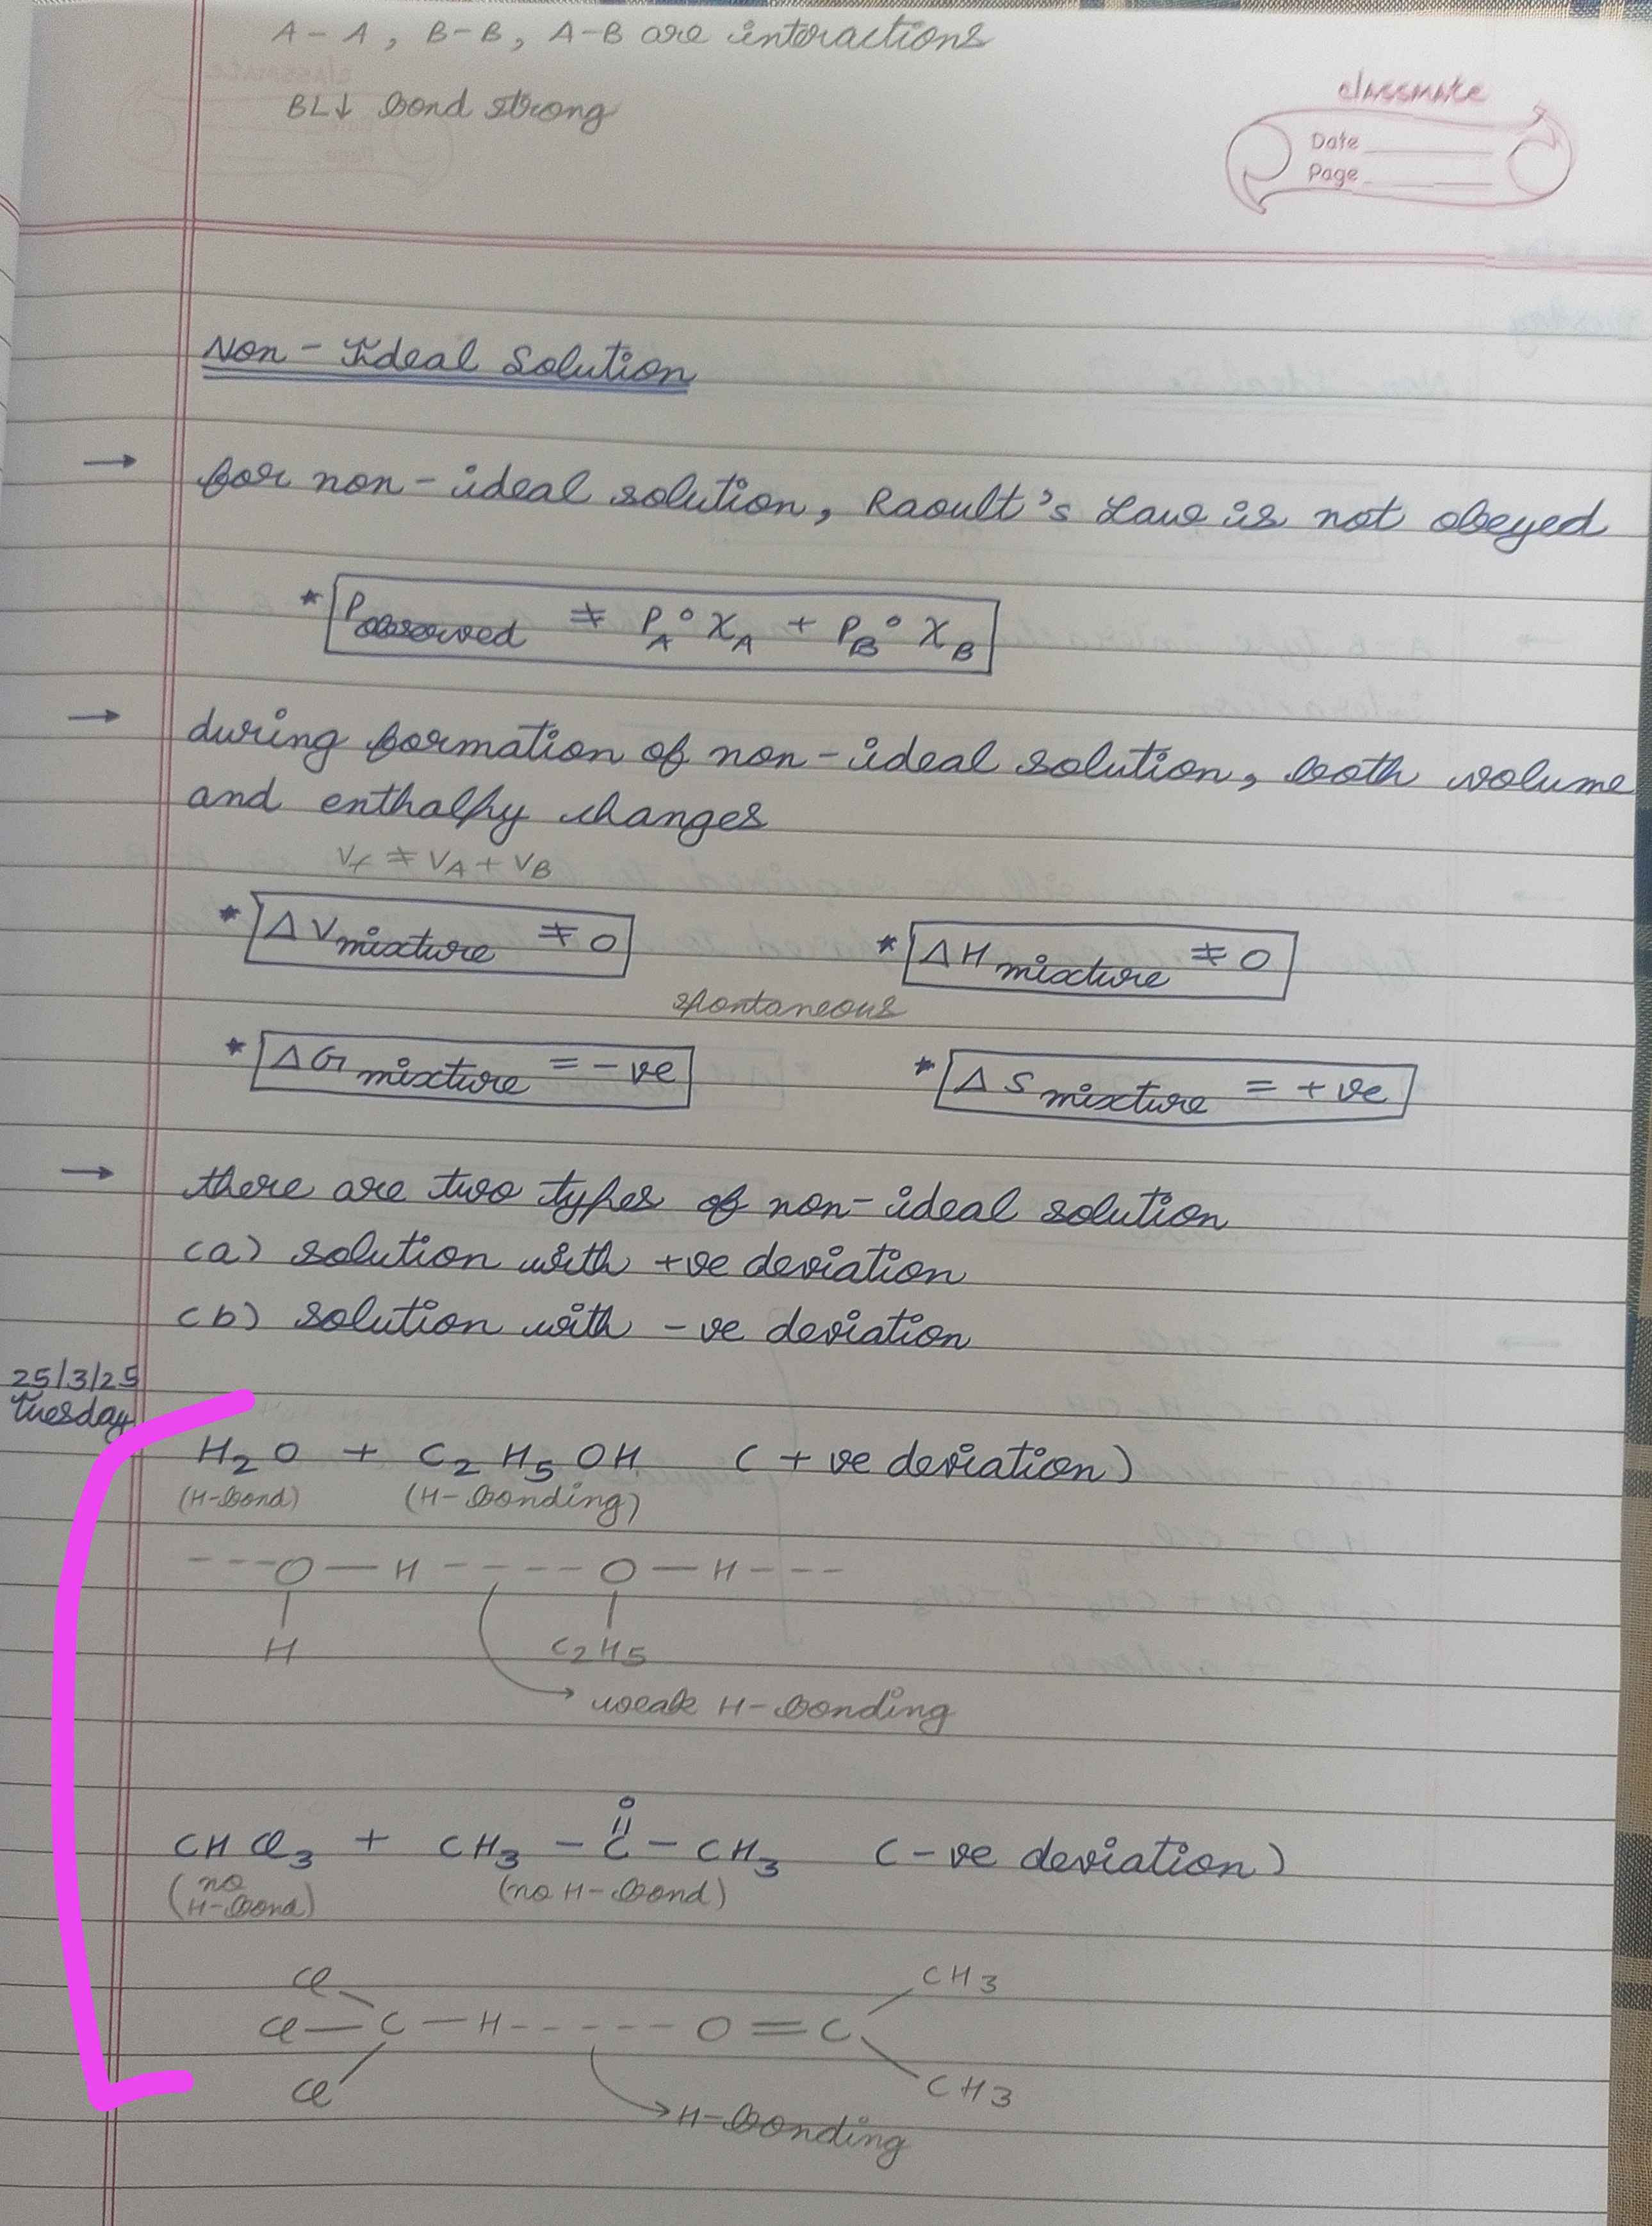 A-A, B-B, A-B are interactions
BL↓ bond strong
classmate
Date
Page
Non-Ideal Solution
→ for non-ideal solution, Raoult's Law is not obeyed
* P observed ≠ P°A XA + PB° XB
→ during formation of non-ideal solution, both volume
and enthalpy changes
Vf ≠ VA + VB
* ΔV mixture ≠ 0 * ΔH mixture ≠ 0
spontaneous
* ΔG mixture = -ve * ΔS mixture = +ve
→ there are two types of non-ideal solution
(a) solution with +ve deviation
(b) solution with -ve deviation
25/3/25
Tuesday
H2O + C2H5OH (+ve deviation)
(H-bond) (H-bonding)
---O—H----O—H---
H C2H5
→ weak H-bonding
CHCl3 + CH3-C-CH3 (-ve deviation)
O
(no H-bond) (no H-bond)
Cl CH3
Cl—C—H-----O=C
Cl CH3
→ H-bonding